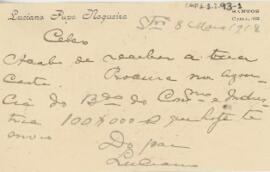 Luciano Pupo Nogueira
SANTOS
8 Maio 1918
Celso
Acabo de receber a tua
carta. Procura na agen-
cia do Bco do Comcio e Indus
tria 100$000 q hoje te
envio
Do pai
Luciano